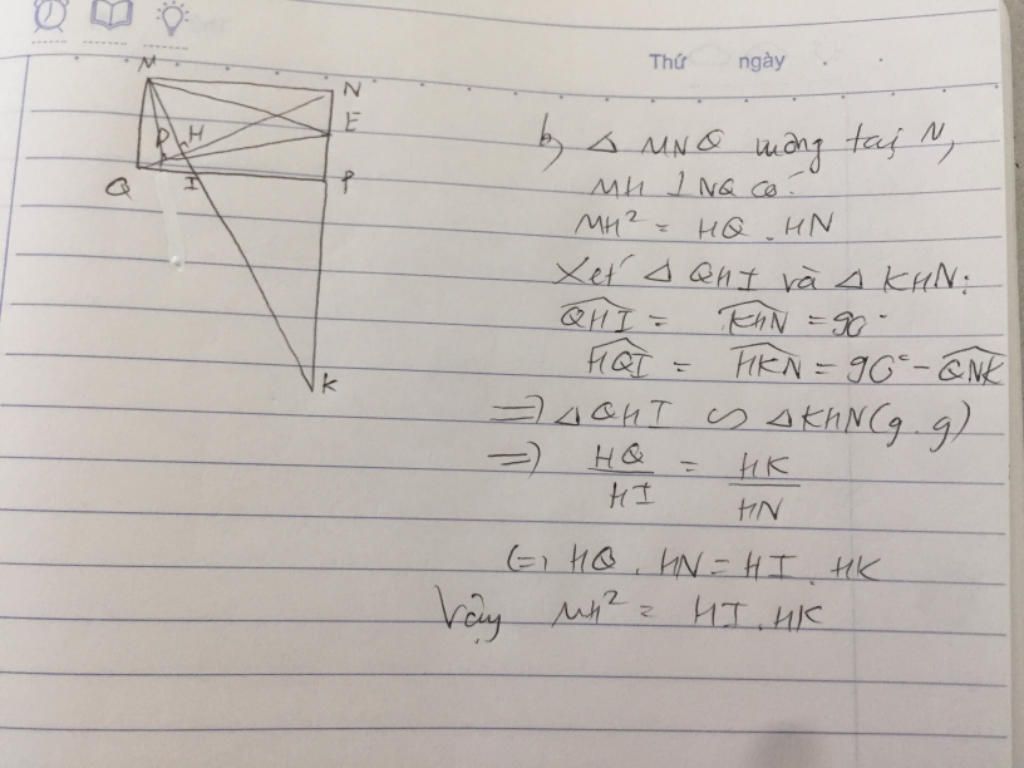 Thứ ngày
M
N
E
H
D
Q
I
P
K
b, Δ MNQ vuông tại N,
MH ⊥ NQ có:
MH² = HQ . HN
Xét Δ QHI và Δ KHN:
∠QHI = ∠KHN = 90°
∠HQI = ∠HKN = 90° - ∠QNK
=> Δ QHI ∽ Δ KHN (g.g)
=> HQ/HI = HK/HN
(=) HQ . HN = HI . HK
Vậy MH² = HI . HK